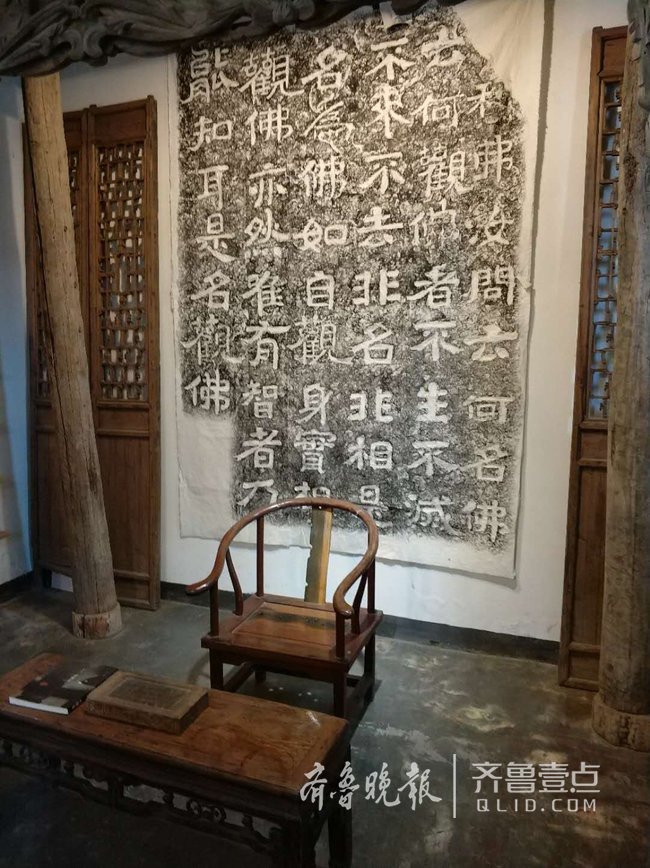 利弗汝問云何名佛
云何觀佛者不生不滅
不来不去非名非相是
名為佛如自觀身實相
觀佛亦然唯有智者乃
能知耳是名觀佛
齊魯晚報
齐鲁壹点
QLID.COM